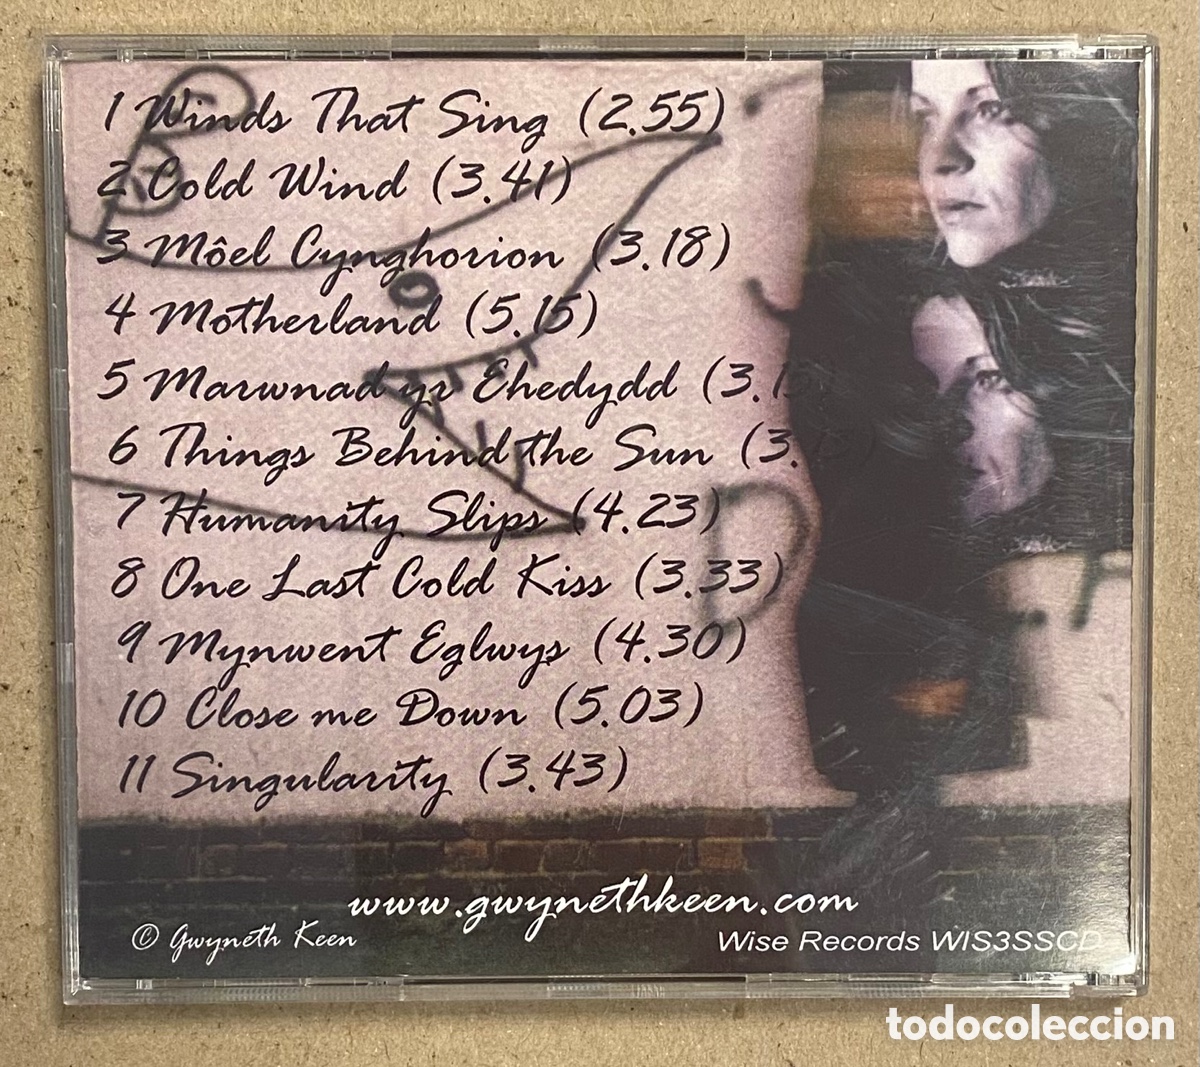 1 Winds That Sing (2.55)
2 Cold Wind (3.41)
3 Môel Cynghorion (3.18)
4 Motherland (5.15)
5 Marwnad yr Ehedydd
6 Things Behind the Sun
7 Humanity Slips (4.23)
8 One Last Cold Kiss (3.33)
9 Mynwent Eglwys (4.30)
10 Close me Down (5.03)
11 Singularity (3.43)
www.gwynethkeen.com
© Gwyneth Keen
Wise Records WIS3SSCD
todocoleccion